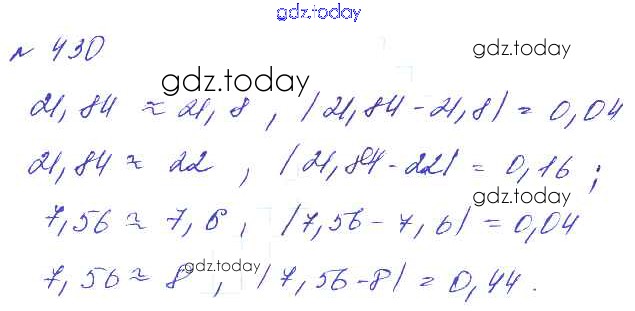 gdz.today
№ 430
gdz.today
gdz.today
21,84 ≈ 21,8 , |21,84 - 21,8| = 0,04
21,84 ≈ 22 , |21,84 - 22| = 0,16 ;
gdz.today
7,56 ≈ 7,6 , |7,56 - 7,6| = 0,04
gdz.today
7,56 ≈ 8 , |7,56 - 8| = 0,44 .